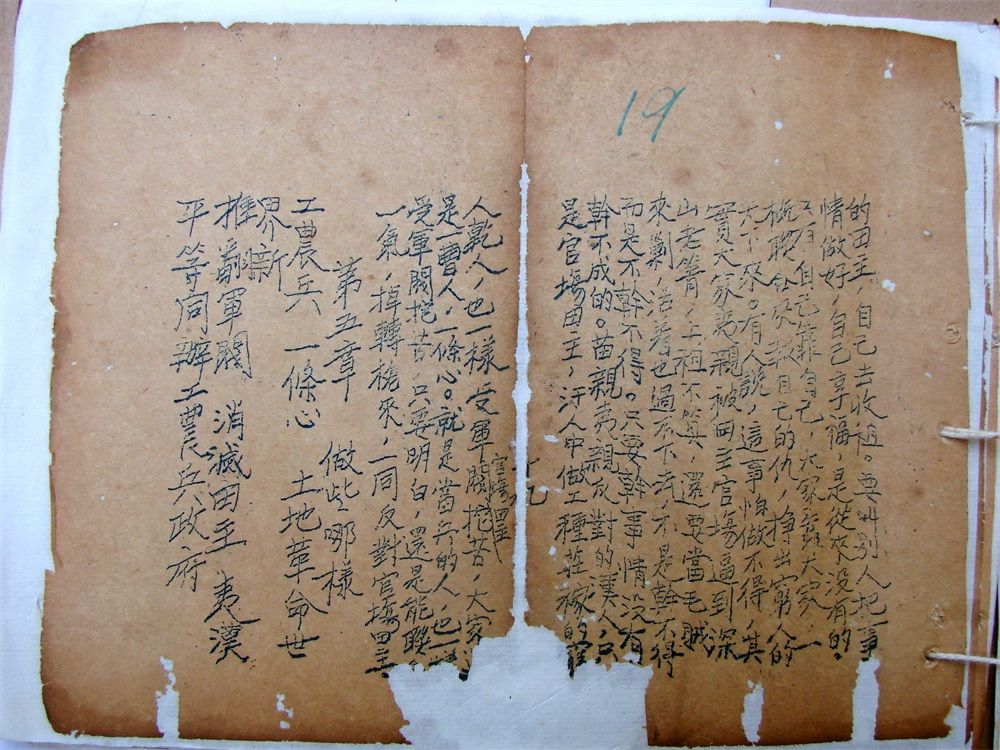 19
的田主，自己去收祖。要叫別人把事
情做好，自己享福，是從來沒有的，
自己靠自己，大家靠大家，一
報自己的仇，掙出窮人的
天下來。有人說，這事怕做不得，其
實大家夷親被田主官塲逼到深
山老箐，上祖不算，還要當毛賊
來剿，活着也過不下去，不是幹不得
而是不幹不得。只要幹事情沒有
幹不成的。苗親夷親反對的漢人，只
是官塲田主，汗人中做工種莊稼的窮
十九
人乾人，也一樣受軍閥官塲田主挖苦，大家
是一曹人，一條心。就是當兵的人，也一樣
受軍閥挖苦，只要明白，還是能聯
一氣，掉轉槍來，一同反對官塲田主
第五章 做些哪樣
工農兵 一條心 土地革命世
界新
推翻軍閥 消滅田主 夷漢
平等同辦工農兵政府